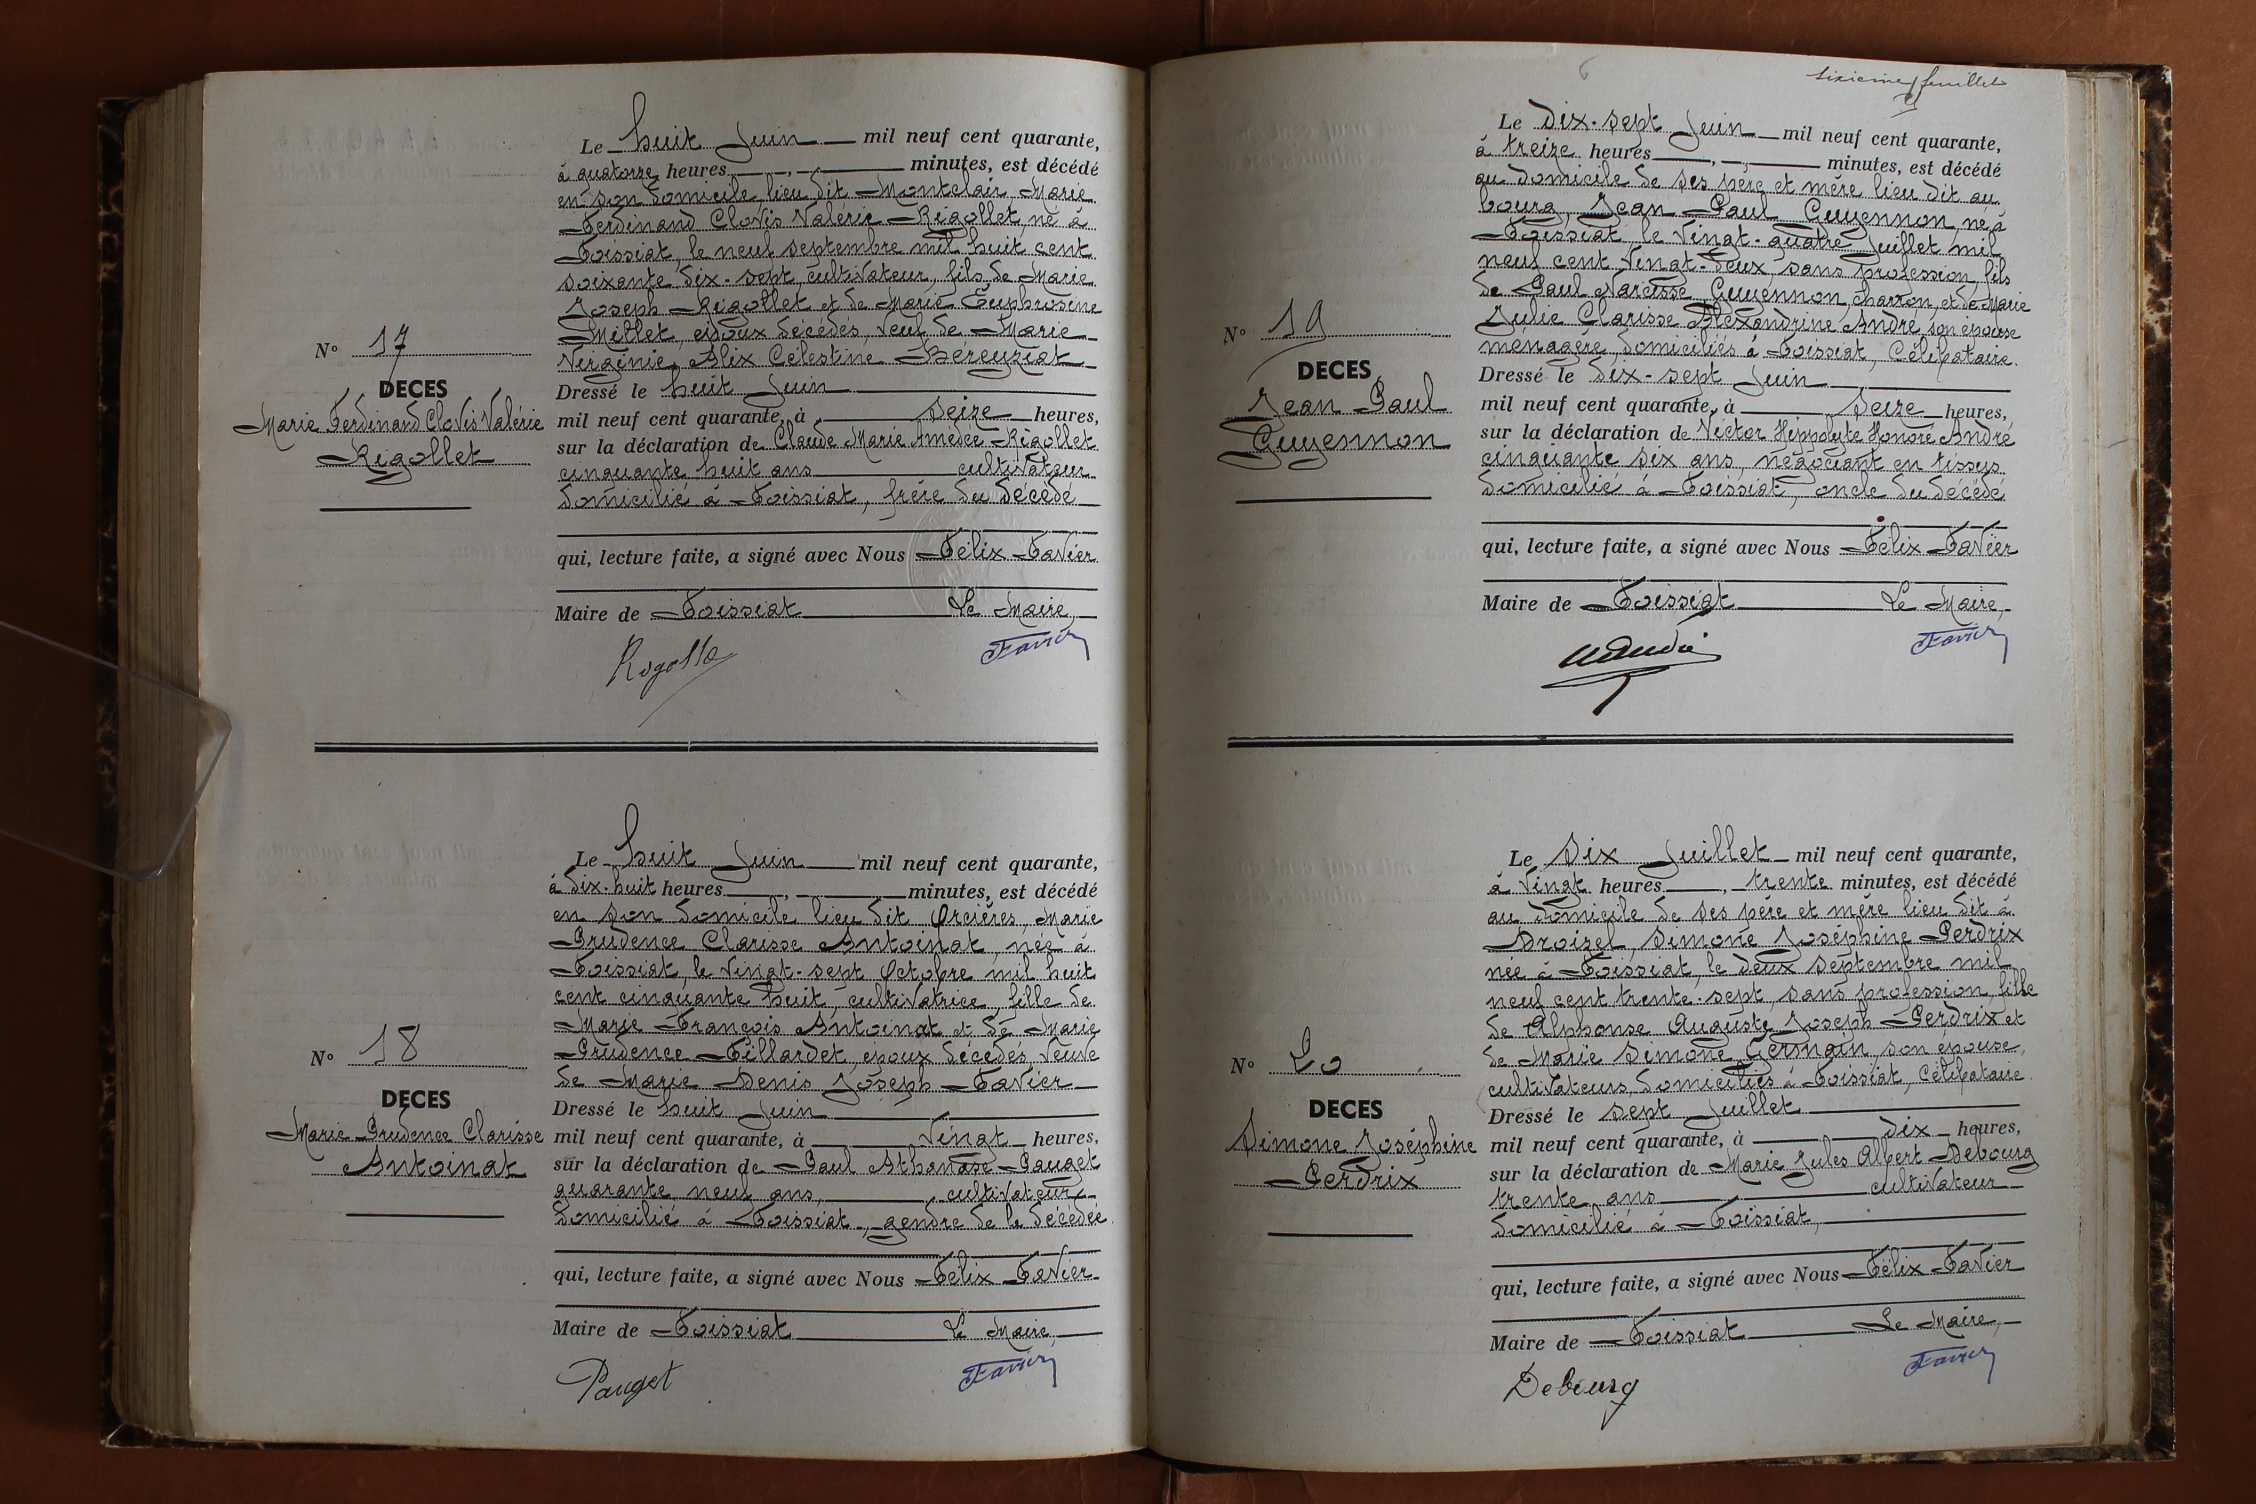 Le huit Juin mil neuf cent quarante,
à quatorze heures , minutes, est décédé
en son domicile, lieu dit Montclair, Marie
Ferdinand Clovis Valérie Rigollet, né à
Foissiat, le neuf septembre mil huit cent
soixante dix-sept, cultivateur, fils de Marie
Joseph Rigollet et de Marie Euphrosine
Millet, époux décédés, veuf de Marie
Virginie Alix Célestine Béreyziat
N° 17
DECES
Marie Ferdinand Clovis Valérie
Rigollet
Dressé le huit Juin
mil neuf cent quarante, à seize heures,
sur la déclaration de Claude Marie Amédée Rigollet
cinquante huit ans cultivateur
domicilié à Foissiat, frère du décédé
qui, lecture faite, a signé avec Nous Félix Favier
Maire de Foissiat Le Maire,
Favier
Le huit Juin mil neuf cent quarante,
à dix-huit heures , minutes, est décédé
en son domicile lieu dit Orcières, Marie
Prudence Clarisse Antoinat, née à
Foissiat, le vingt-sept Octobre mil huit
cent cinquante huit, cultivatrice, fille de
Marie François Antoinat et de Marie
Prudence Fillardet, époux décédés, veuve
de Marie Denis Joseph Favier
N° 18
DECES
Marie Prudence Clarisse
Antoinat
Dressé le huit Juin
mil neuf cent quarante, à vingt heures,
sur la déclaration de Paul Athanase Pauget
quarante neuf ans, cultivateur
domicilié à Foissiat, gendre de la décédée
qui, lecture faite, a signé avec Nous Félix Favier
Maire de Foissiat Le Maire,
Pauget Favier
6
sixième feuillet
Le dix-sept Juin mil neuf cent quarante,
à treize heures , minutes, est décédé
au domicile de ses père et mère lieu dit au
bourg, Jean Paul Guyennon, né à
Foissiat, le vingt-quatre Juillet mil
neuf cent vingt-deux, sans profession, fils
de Paul Narcisse Guyennon, charron, et de Marie
Julie Clarisse Alexandrine André, son épouse
ménagère, domiciliés à Foissiat, Célibataire.
N° 19
DECES
Jean Paul
Guyennon
Dressé le dix-sept Juin
mil neuf cent quarante, à seize heures,
sur la déclaration de Victor Hippolyte Honoré André
cinquante six ans, négociant en tissus
domicilié à Foissiat, oncle du décédé
qui, lecture faite, a signé avec Nous Félix Favier
Maire de Foissiat Le Maire,
Favier
Le six Juillet mil neuf cent quarante,
à vingt heures , trente minutes, est décédé
au domicile de ses père et mère lieu dit à
Broizel, Simone Joséphine Perdrix
née à Foissiat, le deux septembre mil
neuf cent trente-sept, sans profession, fille
de Alphonse Auguste Joseph Perdrix et
de Marie Simone Germain, son épouse,
cultivateurs, domiciliés à Foissiat, Célibataire.
N° 20
DECES
Simone Joséphine
Perdrix
Dressé le sept Juillet
mil neuf cent quarante, à dix heures,
sur la déclaration de Marie Jules Albert Debourg
trente ans cultivateur
domicilié à Foissiat,
qui, lecture faite, a signé avec Nous Félix Favier
Maire de Foissiat Le Maire,
Debourg Favier